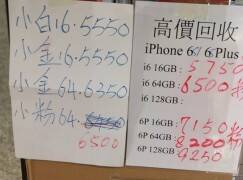 小白16.5550
小金16.5550
小金64.6350
小粉64.
6500
高價回收
iPhone 6/ 6 Plus
i6 16GB: 5750
i6 64GB: 6500
i6 128GB:
6P 16GB: 7150
6P 64GB: 8200
6P 128GB: 9250